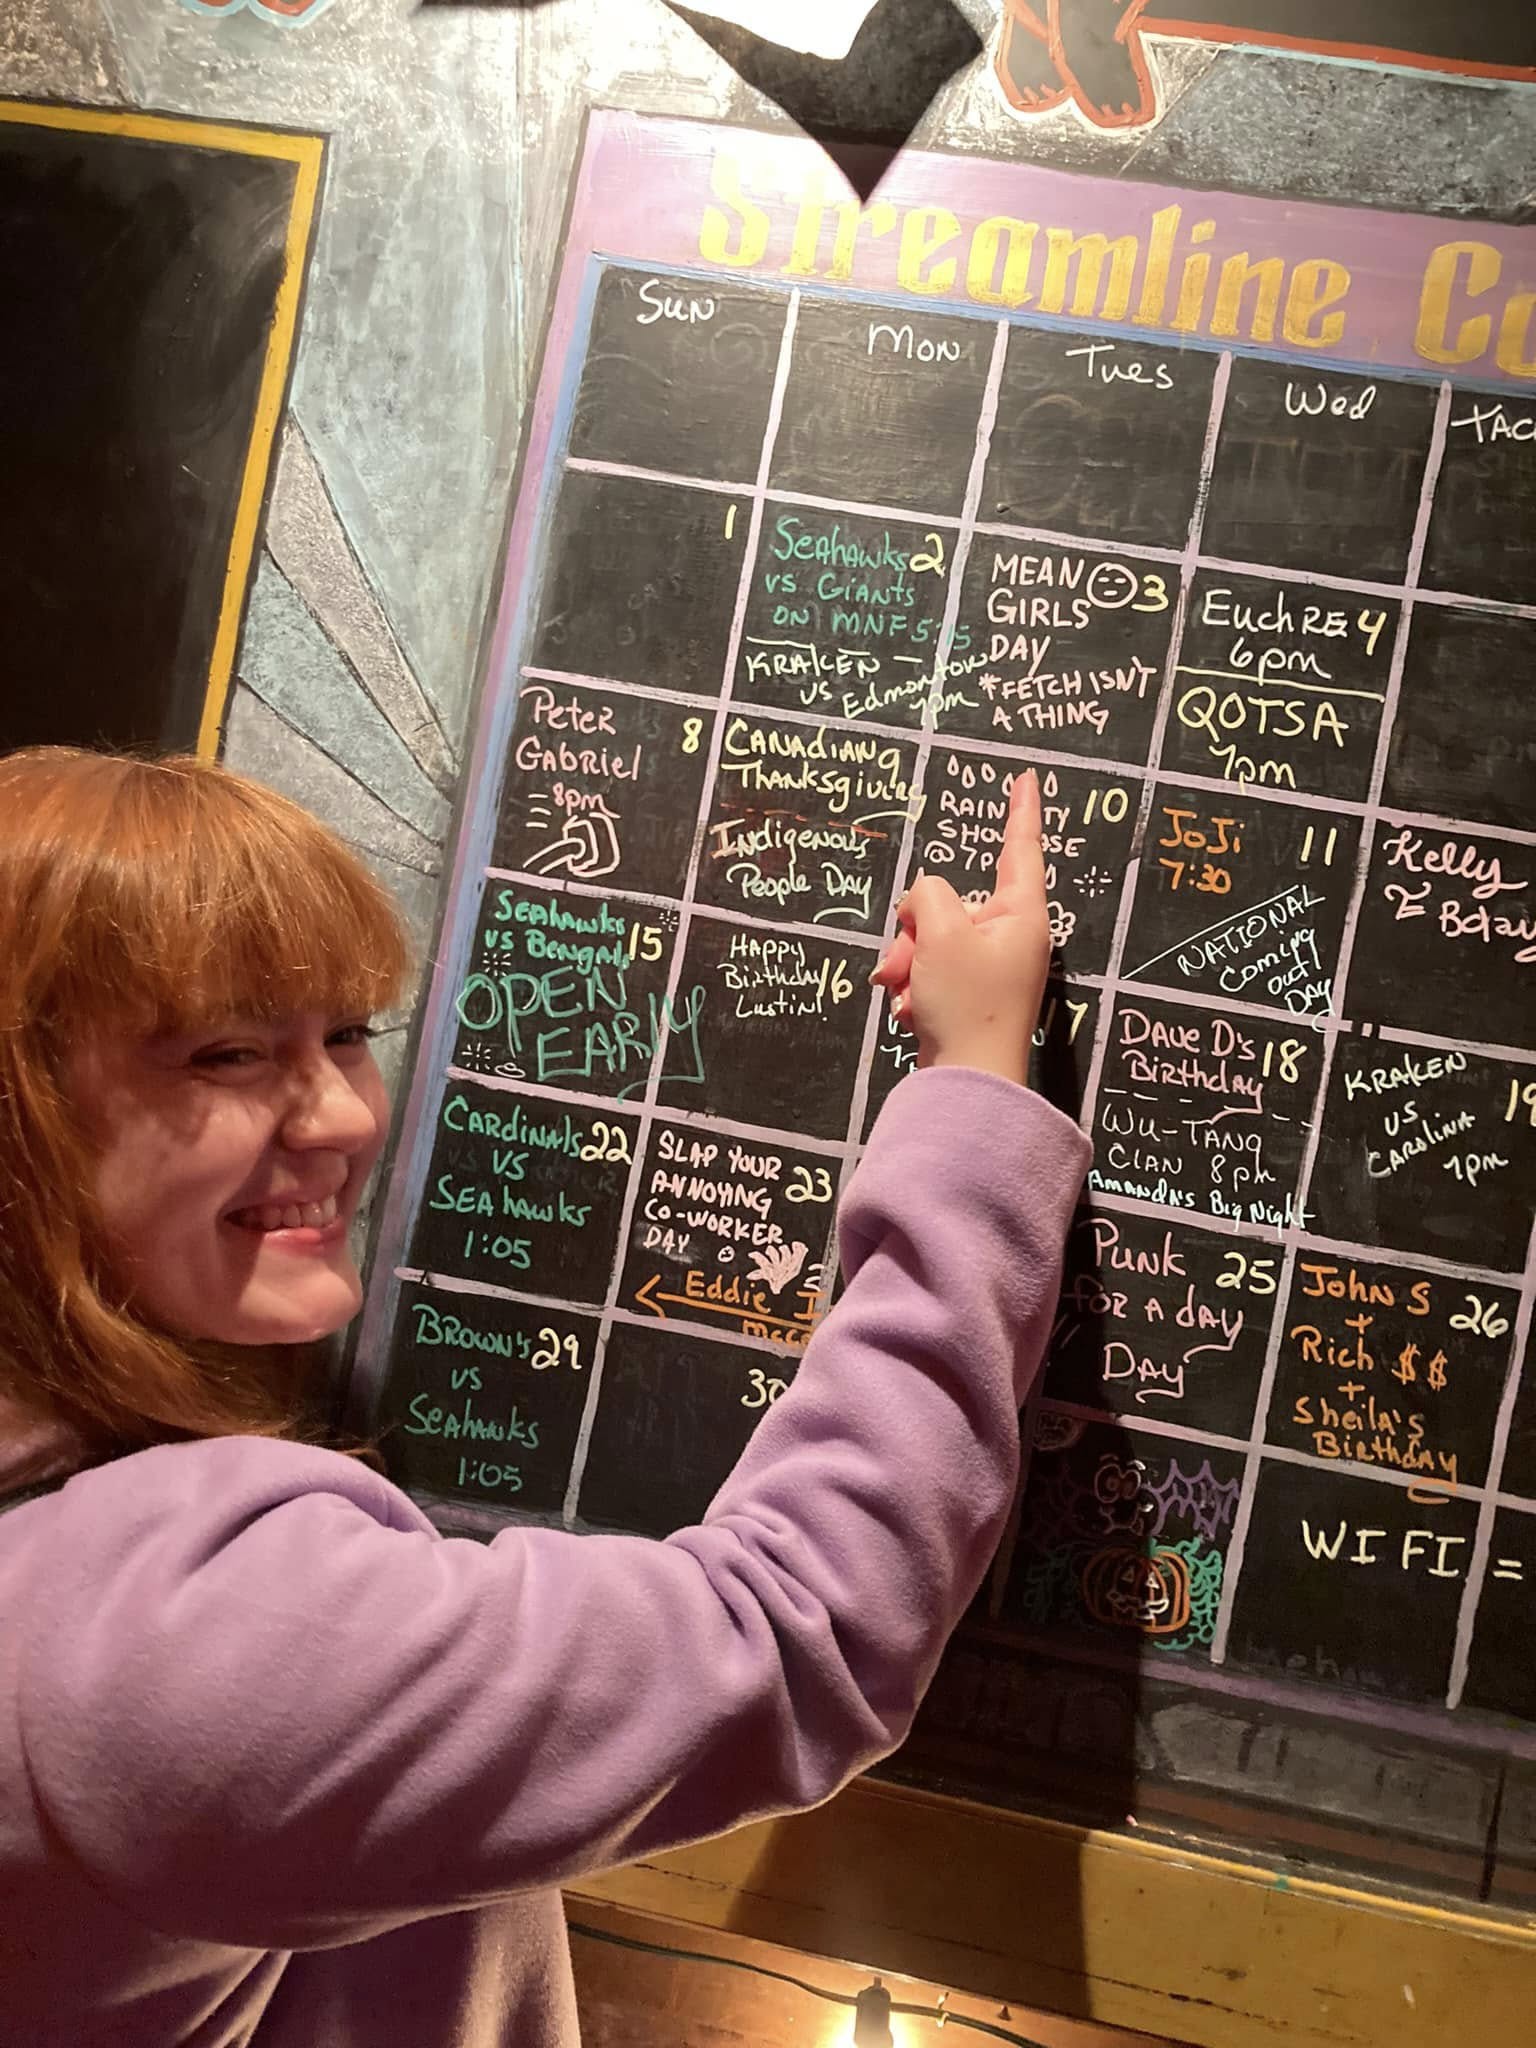 Streamline
Sun
Mon
Tues
Wed
1
Seahawks 2
vs Giants
on MNF
KRAKEN
vs Edmonton
7pm
MEAN 3
GIRLS
DAY
*FETCH ISN'T
A THING
EuchRE 4
6pm
QOTSA
7pm
Peter 8
Gabriel
8pm
CANAdiAN 9
ThANksgiving
Indigenous
People DAY
10
@ 7p
JoJi 11
7:30
NATIONAL
Coming
out!
DAY
Kelly
SEAhawks 15
vs Bengals
OPEN
EARLY
HAPPY
Birthday 16
Lustin!
17
DAVE D's 18
Birthday
WU-TANG
CLAN 8pm
AMANDA's Big Night
KRAKEN 19
vs
CAROLINA
7pm
CARdinAls 22
vs
SEAhawks
1:05
SLAP YOUR 23
ANNOYING
CO-WORKER
DAY
Eddie
PUNK 25
for A dAy
DAY
John S 26
+
Rich $$
+
Sheila's
Birthday
BROWN'S 29
vs
SeahAwks
1:05
30
WI FI =